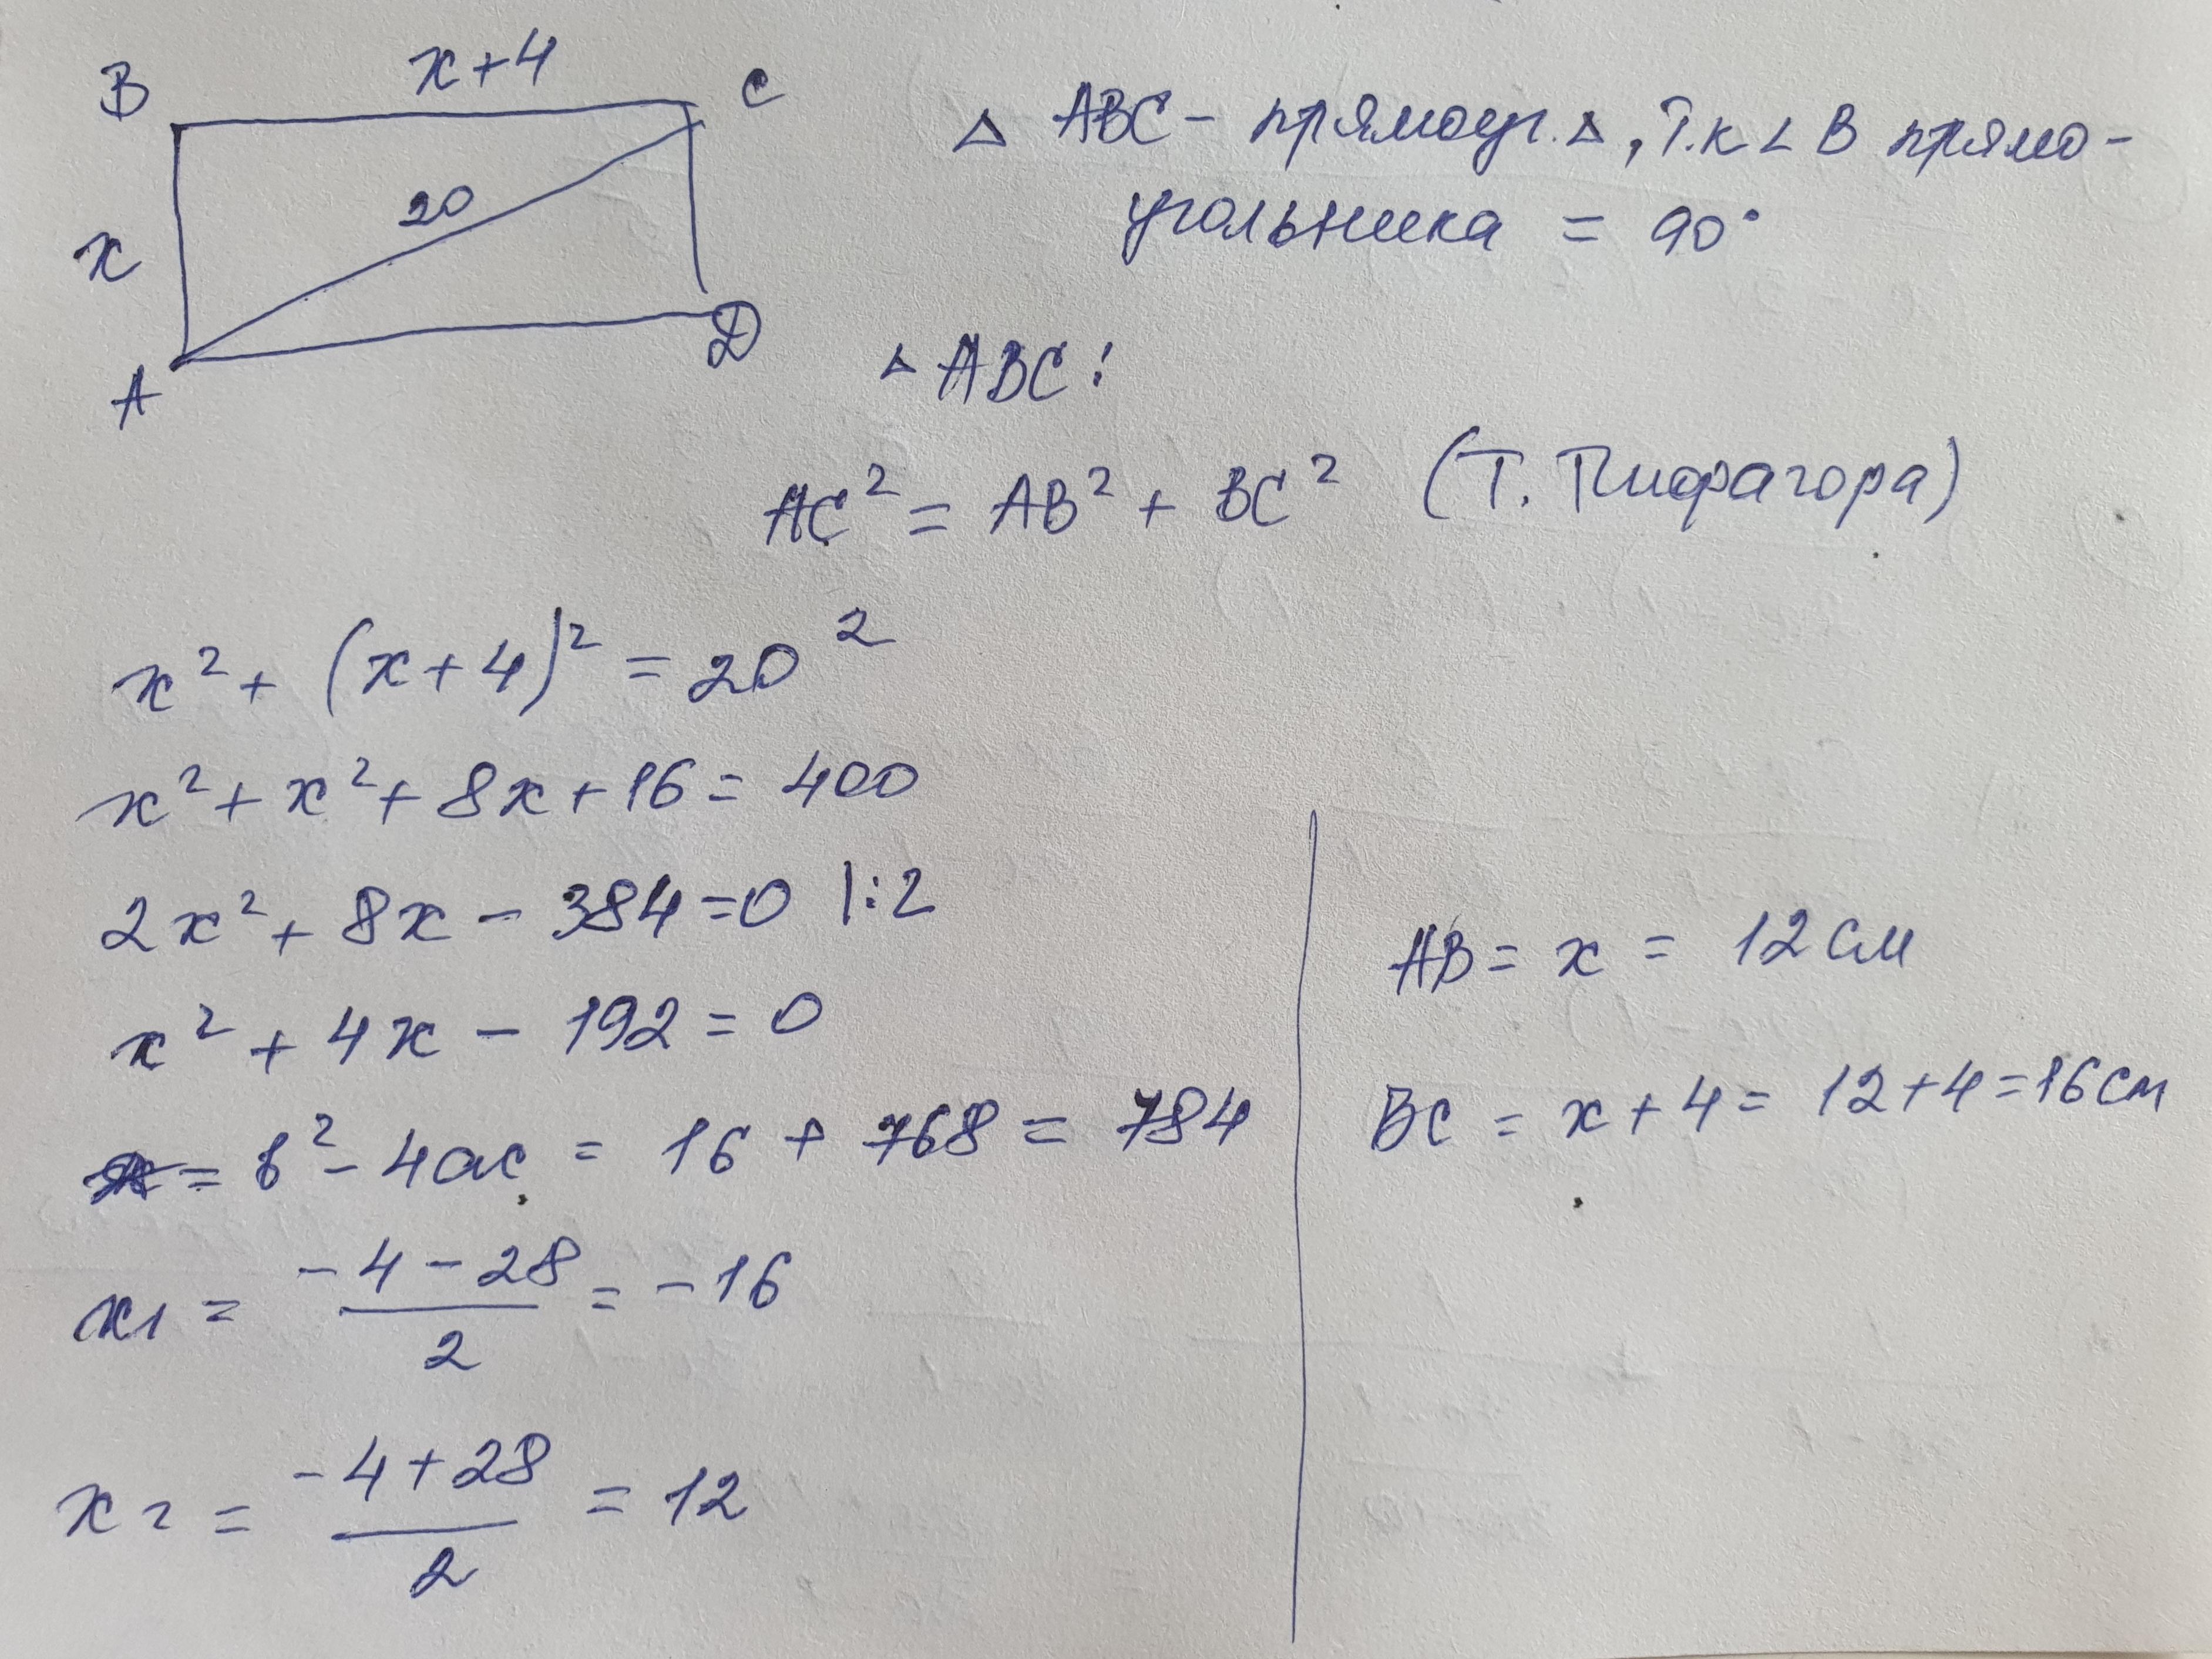 B x+4 C
20
x
A D
△ ABC - прямоуг. △, т.к ∠ B прямо-
угольника = 90°
△ ABC:
AC² = AB² + BC² (Т. Пифагора)
x² + (x+4)² = 20²
x² + x² + 8x + 16 = 400
2x² + 8x - 384 = 0 |:2
x² + 4x - 192 = 0
= b² - 4ac = 16 + 768 = 784
x1 = \frac{-4-28}{2} = -16
x2 = \frac{-4+28}{2} = 12
AB = x = 12 см
BC = x + 4 = 12+4 = 16 см